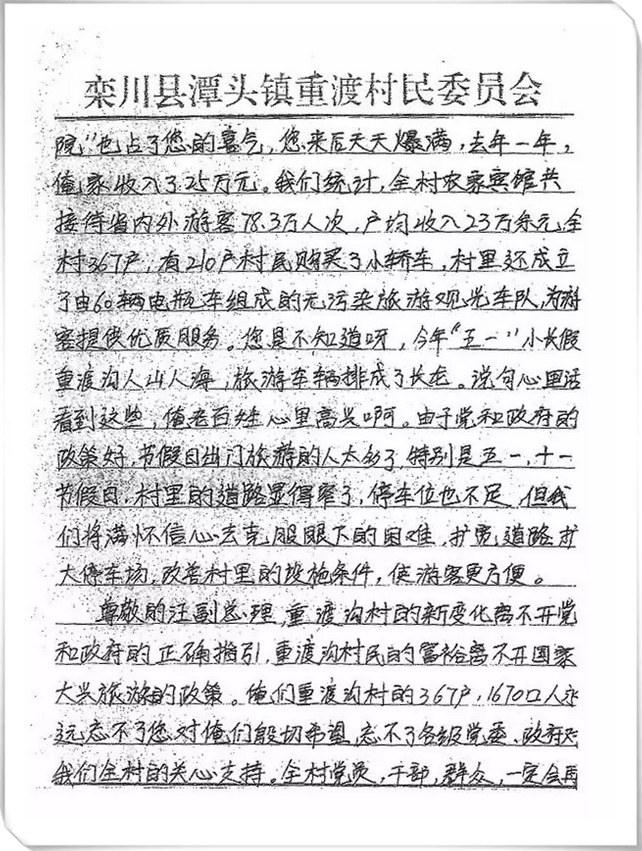 栾川县潭头镇重渡村民委员会
院”也占了您的喜气，您来后天天爆满，去年一年，
俺家收入了25万元。我们统计，全村农家宾馆共
接待省内外游客78.3万人次，户均收入23万余元，全
村367户，有210户村民购买了小轿车，村里还成立
了由60辆电瓶车组成的无污染旅游观光车队，为游
客提供优质服务。您是不知道呀，今年“五一”小长假
重渡沟人山人海，旅游车辆排成了长龙。说句心里话
看到这些，俺老百姓心里高兴啊。由于党和政府的
政策好，节假日出门旅游的人太多了，特别是五一，十一
节假日，村里的道路显得窄了，停车位也不足，但我
们将满怀信心去克服眼下的困难，扩宽道路，扩
大停车场，改善村里的设施条件，使游客更方便。
尊敬的汪副总理，重渡沟村的新变化离不开党
和政府的正确指引，重渡沟村民的富裕离不开国家
大兴旅游的政策。俺们重渡沟村的367户，1670口人永
远忘不了您对俺们殷切希望，忘不了各级党委、政府对
我们全村的关心支持。全村党员，干部，群众，一定会再